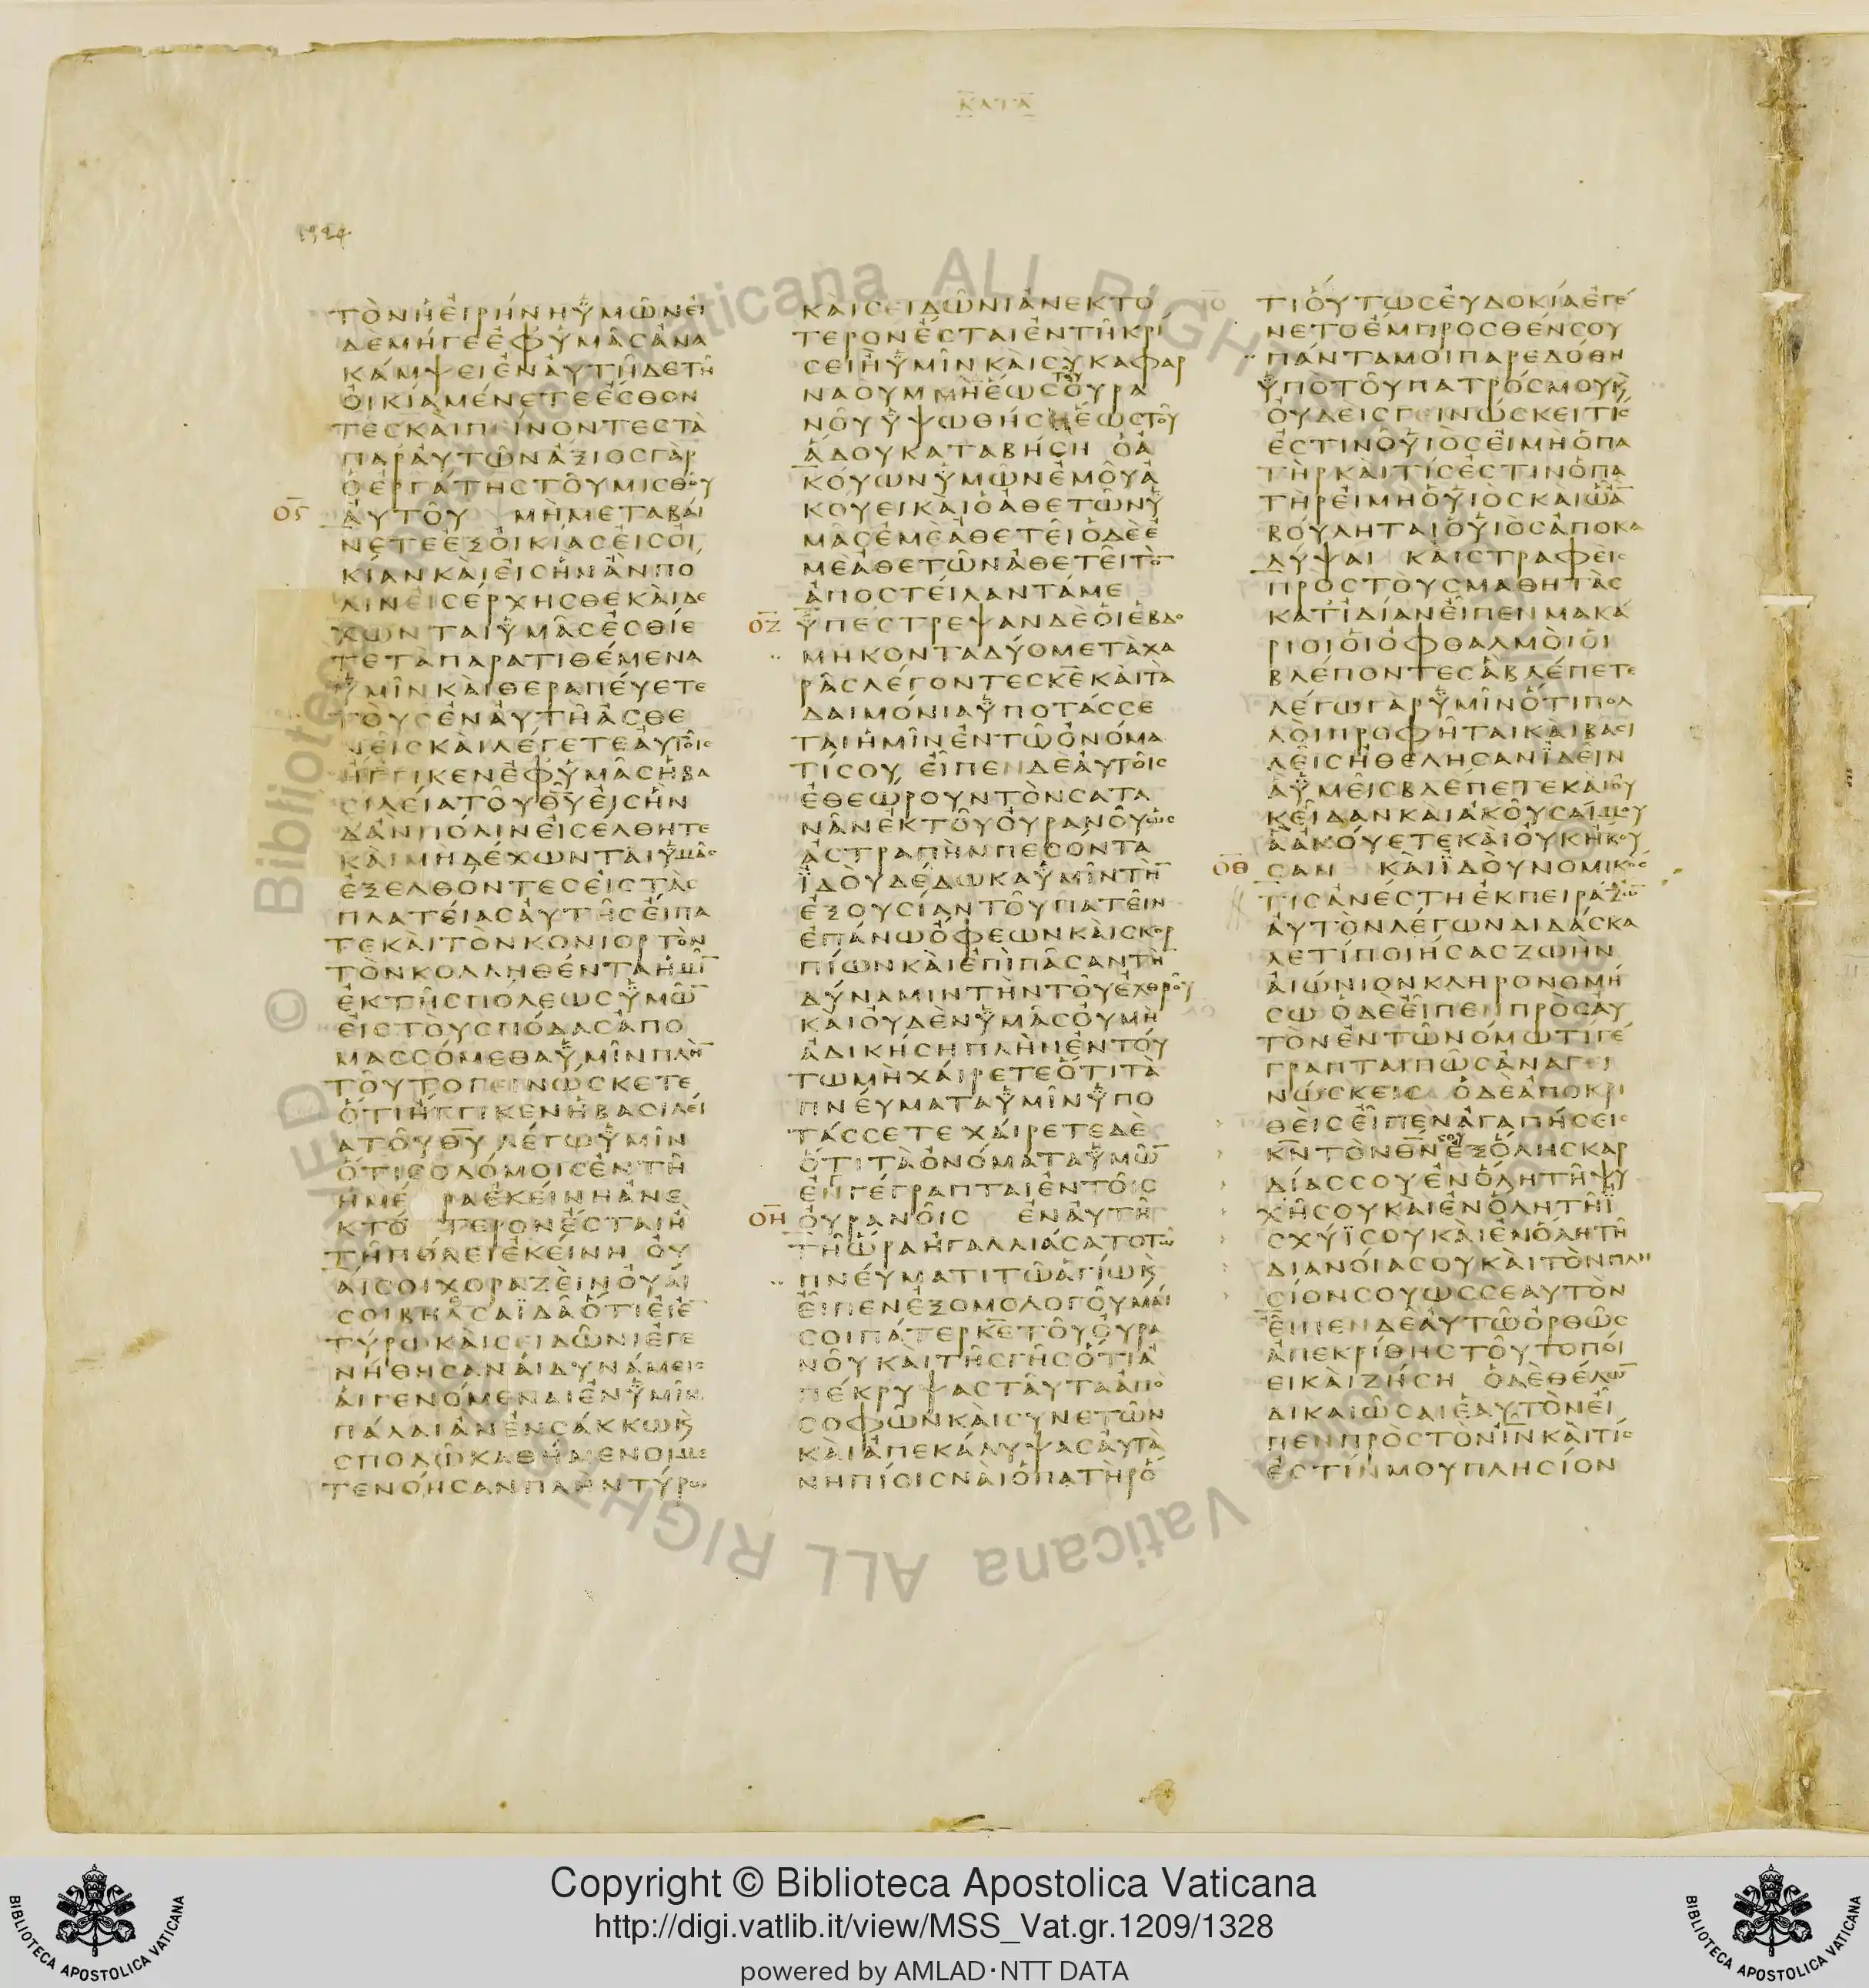 ΚΑΤΑ
1324
ΤΟΝΗΕΙΡΗΝΗΥΜΩΝΕΙ
ΔΕΜΗΓΕΕΦΥΜΑΣΑΝΑ
ΚΑΜΨΕΙΕΝΑΥΤΗΔΕΤΗ
ΟΙΚΙΑΜΕΝΕΤΕΕΣΘΟΝ
ΤΕΣΚΑΙΠΕΙΝΟΝΤΕΣΤΑ
ΠΑΡΑΥΤΩΝΑΞΙΟΣΓΑΡ
ΟΕΡΓΑΤΗΣΤΟΥΜΙΣΘΟΥ
ΟϚ ΑΥΤΟΥ ΜΗΜΕΤΑΒΑΙ
ΝΕΤΕΕΞΟΙΚΙΑΣΕΙΣΟΙ
ΚΙΑΝΚΑΙΕΙΣΗΝΑΝΠΟ
ΛΙΝΕΙΣΕΡΧΗΣΘΕΚΑΙΔΕ
ΧΩΝΤΑΙΥΜΑΣΕΣΘΙΕ
ΤΕΤΑΠΑΡΑΤΙΘΕΜΕΝΑ
ΥΜΙΝΚΑΙΘΕΡΑΠΕΥΕΤΕ
ΤΟΥΣΕΝΑΥΤΗΑΣΘΕ
ΝΕΙΣΚΑΙΛΕΓΕΤΕΑΥΤΟΙΣ
ΗΓΓΙΚΕΝΕΦΥΜΑΣΗΒΑ
ΣΙΛΕΙΑΤΟΥΘ̅Υ̅ΕΙΣΗΝ
ΔΑΝΠΟΛΙΝΕΙΣΕΛΘΗΤΕ
ΚΑΙΜΗΔΕΧΩΝΤΑΙΥΜΑΣ
ΕΞΕΛΘΟΝΤΕΣΕΙΣΤΑΣ
ΠΛΑΤΕΙΑΣΑΥΤΗΣΕΙΠΑ
ΤΕΚΑΙΤΟΝΚΟΝΙΟΡΤΟΝ
ΤΟΝΚΟΛΛΗΘΕΝΤΑΗΜΙ̅
ΕΚΤΗΣΠΟΛΕΩΣΥΜΩ̅
ΕΙΣΤΟΥΣΠΟΔΑΣΑΠΟ
ΜΑΣΣΟΜΕΘΑΥΜΙΝΠΛΗ̅
ΤΟΥΤΟΓΕΙΝΩΣΚΕΤΕ
ΟΤΙΗΓΓΙΚΕΝΗΒΑΣΙΛΕΙ
ΑΤΟΥΘ̅Υ̅ ΛΕΓΩΥΜΙΝ
ΟΤΙΣΟΔΟΜΟΙΣΕΝΤΗ
ΗΜΕ ΡΑΕΚΕΙΝΗΑΝΕ
ΚΤΟ ΤΕΡΟΝΕΣΤΑΙΗ
ΤΗΠΟΛΕΙΕΚΕΙΝΗ ΟΥ
ΑΙΣΟΙΧΟΡΑΖΕΙΝΟΥΑΙ
ΣΟΙΒΗΔΣΑΪΔΑΟΤΙΕΙΕ̅
ΤΥΡΩΚΑΙΣΕΙΔΩΝΙΕΓΕ
ΝΗΘΗΣΑΝΑΙΔΥΝΑΜΕΙΣ
ΑΙΓΕΝΟΜΕΝΑΙΕΝΥΜΙΝ
ΠΑΛΑΙΑΝΕΝΣΑΚΚΩϏ
ΣΠΟΔΩΚΑΘΗΜΕΝΟΙΜΕ
ΤΕΝΟΗΣΑΝΠΛΗΝΤΥΡΩ
ΚΑΙΣΕΙΔΩΝΙΑΝΕΚΤΟ
ΤΕΡΟΝΕΣΤΑΙΕΝΤΗΚΡΙ
ΣΕΙΗΥΜΙΝΚΑΙΣΥΚΑΦΑΡ
ΝΑΟΥΜΜΗΕΩΣΤΟΥΟΥΡΑ
ΝΟΥΥΨΩΘΗΣΗΕΩΣΤΟΥ
ΑΔΟΥΚΑΤΑΒΗΣΗ ΟΑ
ΚΟΥΩΝΥΜΩΝΕΜΟΥΑ
ΚΟΥΕΙΚΑΙΟΑΘΕΤΩΝΥ
ΜΑΣΕΜΕΑΘΕΤΕΙΟΔΕΕ
ΜΕΑΘΕΤΩΝΑΘΕΤΕΙΤΟ̅
ΑΠΟΣΤΕΙΛΑΝΤΑΜΕ
ΟΖ ΥΠΕΣΤΡΕΨΑΝΔΕΟΙΕΒΔΟ
ΜΗΚΟΝΤΑΔΥΟΜΕΤΑΧΑ
ΡΑΣΛΕΓΟΝΤΕΣΚ̅Ε̅ΚΑΙΤΑ
ΔΑΙΜΟΝΙΑΥΠΟΤΑΣΣΕ
ΤΑΙΗΜΙΝΕΝΤΩΟΝΟΜΑ
ΤΙΣΟΥ ΕΙΠΕΝΔΕΑΥΤΟΙΣ
ΕΘΕΩΡΟΥΝΤΟΝΣΑΤΑ
ΝΑΝΕΚΤΟΥΟΥΡΑΝΟΥΩΣ
ΑΣΤΡΑΠΗΝΠΕΣΟΝΤΑ
ΪΔΟΥΔΕΔΩΚΑΥΜΙΝΤΗ̅
ΕΞΟΥΣΙΑΝΤΟΥΠΑΤΕΙΝ
ΕΠΑΝΩΟΦΕΩΝΚΑΙΣΚΟΡ
ΠΙΩΝΚΑΙΕΠΙΠΑΣΑΝΤΗ̅
ΔΥΝΑΜΙΝΤΗΝΤΟΥΕΧΘΡΟΥ
ΚΑΙΟΥΔΕΝΥΜΑΣΟΥΜΗ
ΑΔΙΚΗΣΗΠΛΗΝΕΝΤΟΥ
ΤΩΜΗΧΑΙΡΕΤΕΟΤΙΤΑ
ΠΝΕΥΜΑΤΑΥΜΙΝΥΠΟ
ΤΑΣΣΕΤΕΧΑΙΡΕΤΕΔΕ
ΟΤΙΤΑΟΝΟΜΑΤΑΥΜΩ̅
ΕΝΓΕΓΡΑΠΤΑΙΕΝΤΟΙΣ
ΟΗ ΟΥΡΑΝΟΙΣ ΕΝΑΥΤΗ
ΤΗΩΡΑΗΓΑΛΛΙΑΣΑΤΟΤΩ
ΠΝΕΥΜΑΤΙΤΩΑΓΙΩϏ
ΕΙΠΕΝΕΞΟΜΟΛΟΓΟΥΜΑΙ
ΣΟΙΠΑΤΕΡΚ̅Ε̅ΤΟΥΟΥΡΑ
ΝΟΥΚΑΙΤΗΣΓΗΣΟΤΙΑ
ΠΕΚΡΥΨΑΣΤΑΥΤΑΑΠΟ
ΣΟΦΩΝΚΑΙΣΥΝΕΤΩΝ
ΚΑΙΑΠΕΚΑΛΥΨΑΣΑΥΤΑ
ΝΗΠΙΟΙΣΝΑΙΟΠΑΤΗΡΟ
ΤΙΟΥΤΩΣΕΥΔΟΚΙΑΕΓΕ
ΝΕΤΟΕΜΠΡΟΣΘΕΝΣΟΥ
ΠΑΝΤΑΜΟΙΠΑΡΕΔΟΘΗ
ΥΠΟΤΟΥΠΑΤΡΟΣΜΟΥϏ
ΟΥΔΕΙΣΓΕΙΝΩΣΚΕΙΤΙΣ
ΕΣΤΙΝΟΥΙΟΣΕΙΜΗΟΠΑ
ΤΗΡΚΑΙΤΙΣΕΣΤΙΝΟΠΑ
ΤΗΡΕΙΜΗΟΥΙΟΣΚΑΙΩΑ̅
ΒΟΥΛΗΤΑΙΟΥΙΟΣΑΠΟΚΑ
ΛΥΨΑΙ ΚΑΙΣΤΡΑΦΕΙΣ
ΠΡΟΣΤΟΥΣΜΑΘΗΤΑΣ
ΚΑΤΙΔΙΑΝΕΙΠΕΝΜΑΚΑ
ΡΙΟΙΟΙΟΦΘΑΛΜΟΙΟΙ
ΒΛΕΠΟΝΤΕΣΑΒΛΕΠΕΤΕ
ΛΕΓΩΓΑΡΥΜΙΝΟΤΙΠΟΛ
ΛΟΙΠΡΟΦΗΤΑΙΚΑΙΒΑΣΙ
ΛΕΙΣΗΘΕΛΗΣΑΝΪΔΕΙΝ
ΑΥΜΕΙΣΒΛΕΠΕΤΕΚΑΙΟΥ
ΚΕΙΔΑΝΚΑΙΑΚΟΥΣΑΙΜΟΥ
ΑΑΚΟΥΕΤΕΚΑΙΟΥΚΗΚΟΥ
ΟΘ ΣΑΝ ΚΑΙΪΔΟΥΝΟΜΙΚΟΣ
ΤΙΣΑΝΕΣΤΗΕΚΠΕΙΡΑΖΩ̅
ΑΥΤΟΝΛΕΓΩΝΔΙΔΑΣΚΑ
ΛΕΤΙΠΟΙΗΣΑΣΖΩΗΝ
ΑΙΩΝΙΟΝΚΛΗΡΟΝΟΜΗ
ΣΩ ΟΔΕΕΙΠΕΝΠΡΟΣΑΥ
ΤΟΝΕΝΤΩΝΟΜΩΤΙΓΕ
ΓΡΑΠΤΑΙΠΩΣΑΝΑΓΕΙ
ΝΩΣΚΕΙΣ ΟΔΕΑΠΟΚΡΙ
ΘΕΙΣΕΙΠΕΝΑΓΑΠΗΣΕΙΣ
Κ̅Ν̅ΤΟΝΘ̅Ν̅ΣΟΥΕΞΟΛΗΣΚΑΡ
ΔΙΑΣΣΟΥΕΝΟΛΗΤΗΨΥ
ΧΗΣΟΥΚΑΙΕΝΟΛΗΤΗΪ
ΣΧΥΪΣΟΥΚΑΙΕΝΟΛΗΤΗ
ΔΙΑΝΟΙΑΣΟΥΚΑΙΤΟΝΠΛΗ
ΣΙΟΝΣΟΥΩΣΣΕΑΥΤΟΝ
ΕΙΠΕΝΔΕΑΥΤΩΟΡΘΩΣ
ΑΠΕΚΡΙΘΗΣΤΟΥΤΟΠΟΙ
ΕΙΚΑΙΖΗΣΗ ΟΔΕΘΕΛΩ̅
ΔΙΚΑΙΩΣΑΙΕΑΥΤΟΝΕΙ
ΠΕΝΠΡΟΣΤΟΝΙ̅Ν̅ΚΑΙΤΙΣ
ΕΣΤΙΝΜΟΥΠΛΗΣΙΟΝ
© Biblioteca Apostolica Vaticana ALL RIGHTS RESERVED
Copyright © Biblioteca Apostolica Vaticana
http://digi.vatlib.it/view/MSS_Vat.gr.1209/1328
powered by AMLAD·NTT DATA
BIBLIOTECA APOSTOLICA VATICANA
BIBLIOTECA APOSTOLICA VATICANA